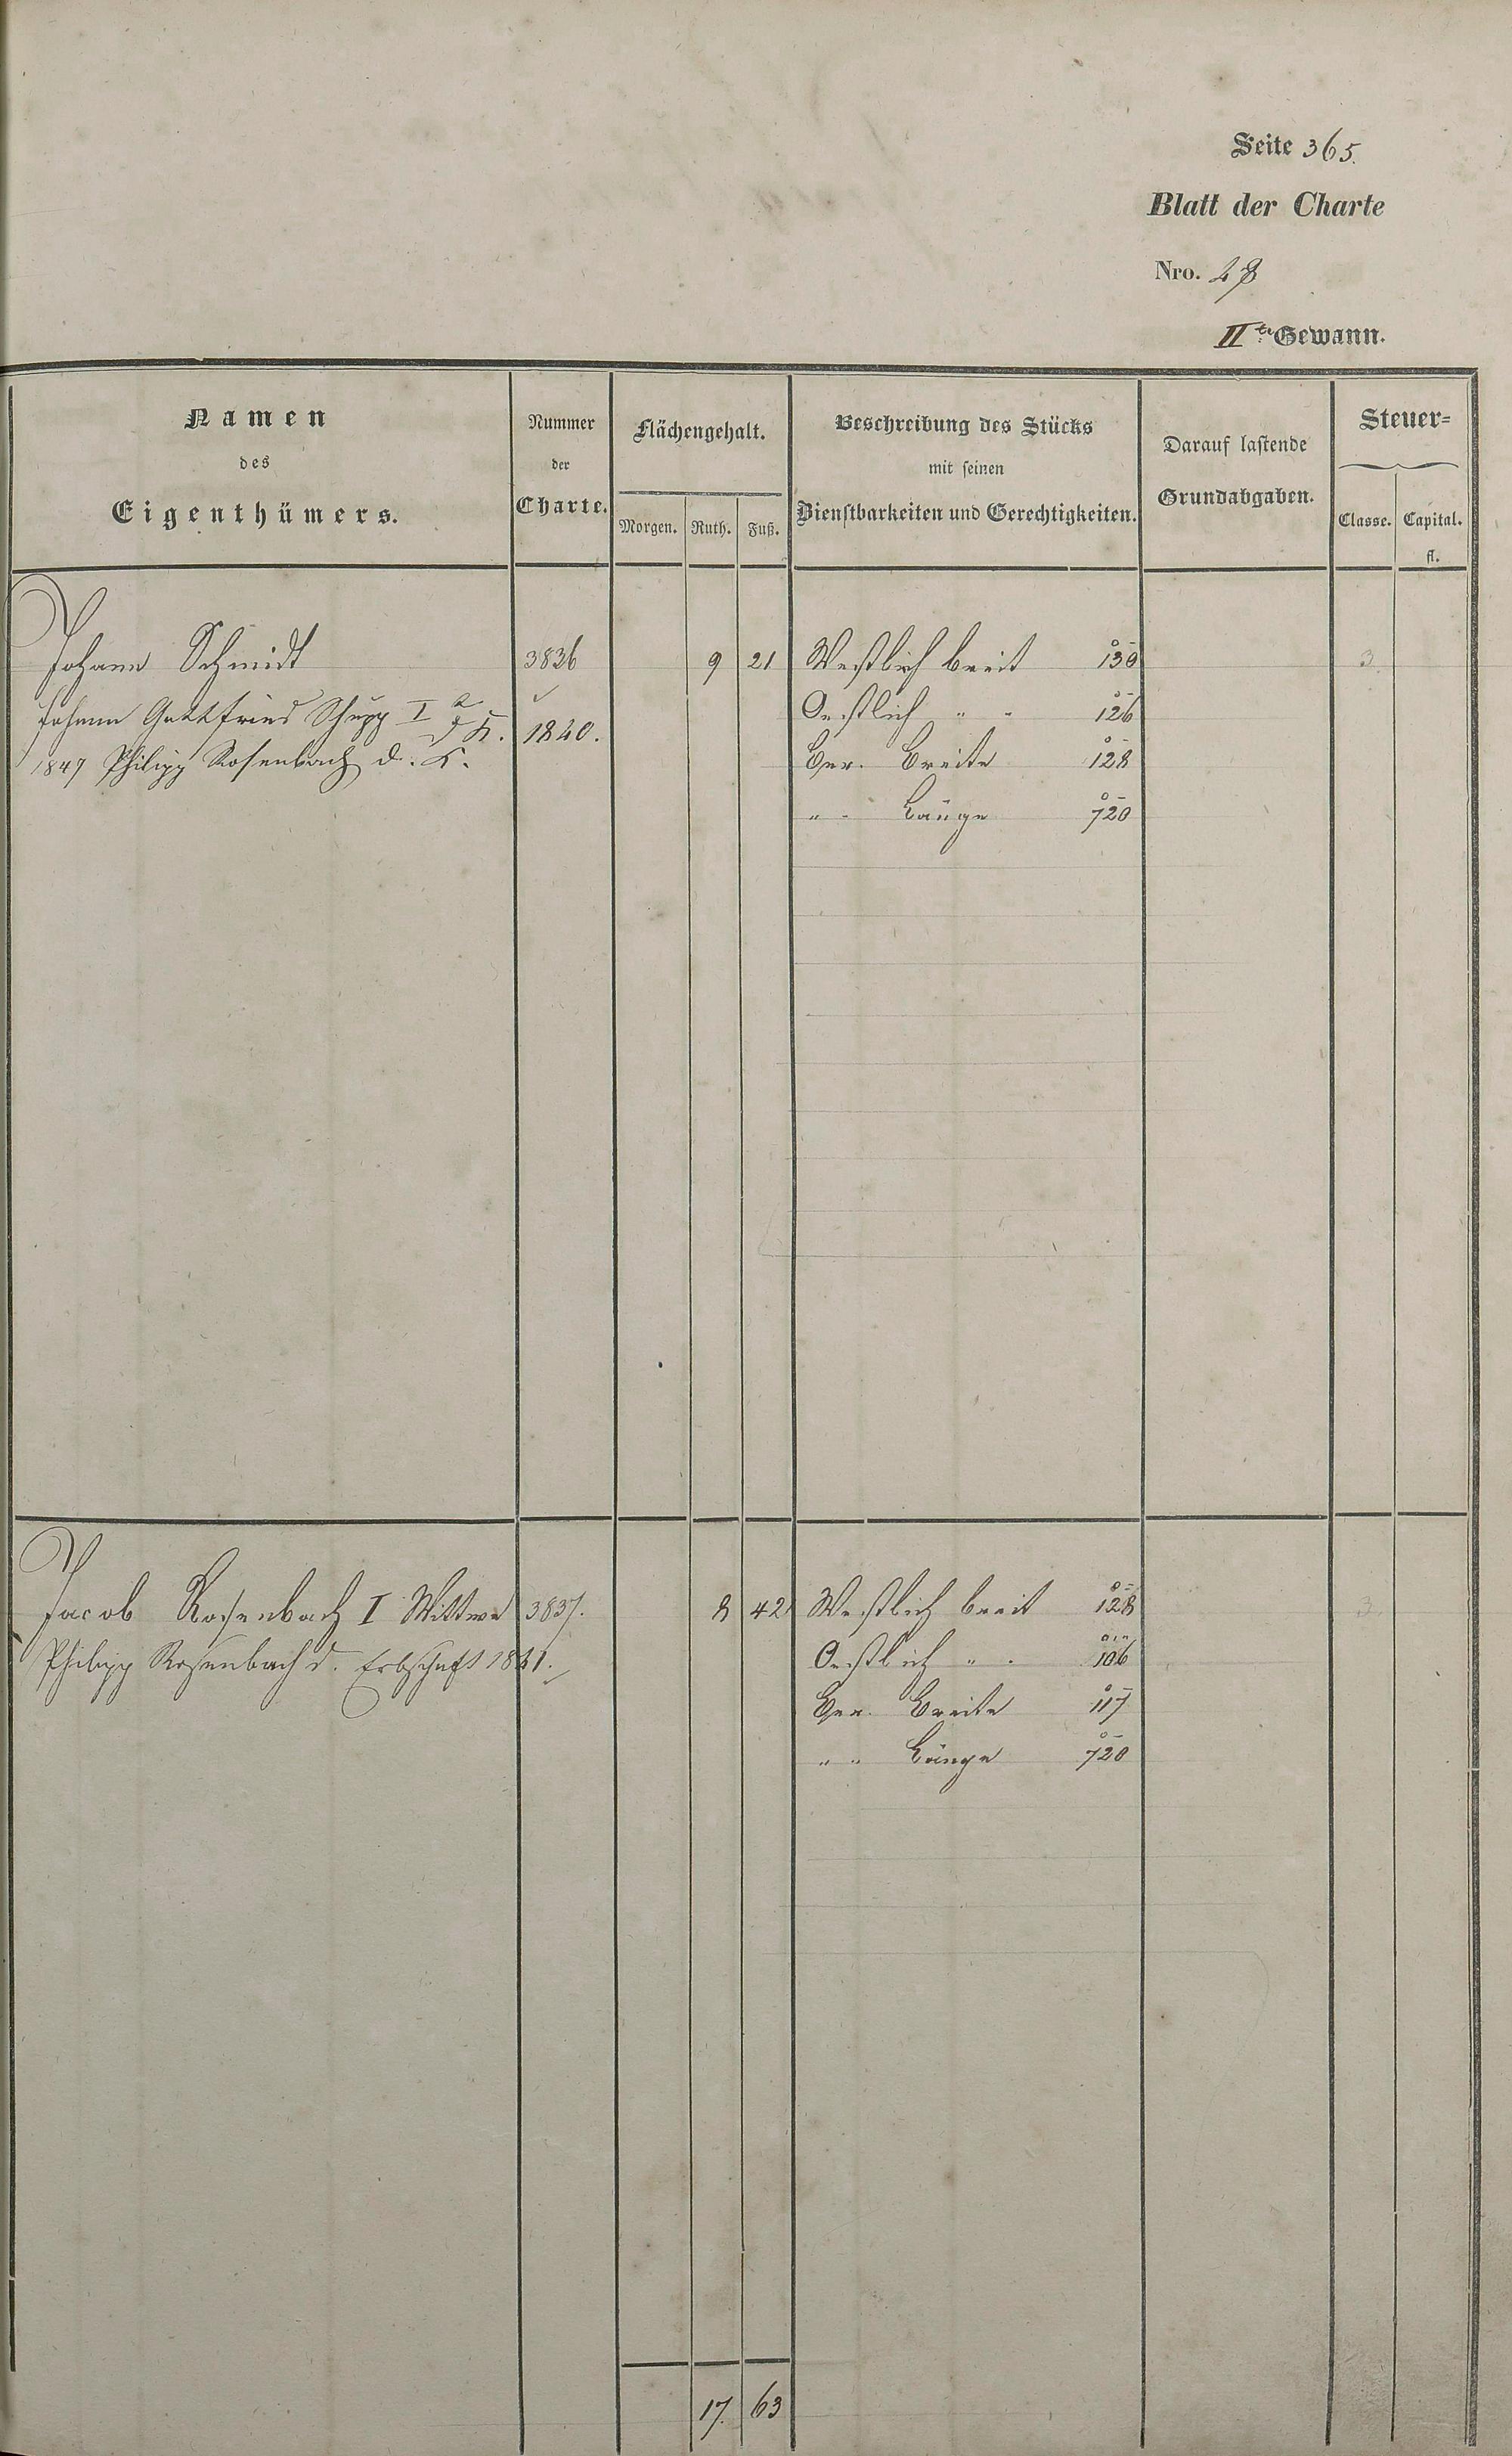 Seite 365.
Blatt der Charte
Nro. 48
II te Gewann.
Namen des Eigenthümers.
Nummer der Charte.
Flächengehalt.
Morgen. Ruth. Fuß.
Beschreibung des Stücks mit seinen Dienstbarkeiten und Gerechtigkeiten.
Darauf lastende Grundabgaben.
Steuer=
Classe. Capital.
fl.
Johann Schmidt 3836 9 21 Westlich breit 130 3.
Johann Gottfried Schupp I d. K. 1840. Oestlich " " 126
1847 Philipp Rosenbach d. K. Ger. Breite 128
" " Länge 720
Jacob Rosenbach I Wittwe 3837. 8 42 Westlich breit 128 3.
Philipp Rosenbach d. Erbschaft 1841. Oestlich " " 106
Ger. Breite 117
" " Länge 720
17 63